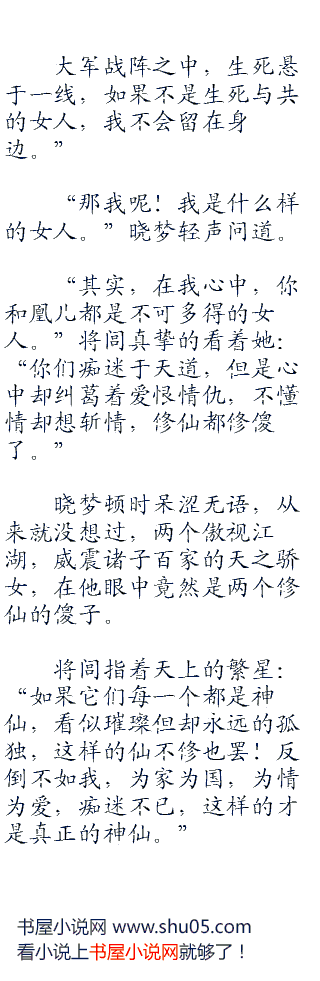 大军战阵之中，生死悬
于一线，如果不是生死与共
的女人，我不会留在身
边。”
“那我呢！我是什么样
的女人。”晓梦轻声问道。
“其实，在我心中，你
和凰儿都是不可多得的女
人。”将闾真挚的看着她：
“你们痴迷于天道，但是心
中却纠葛着爱恨情仇，不懂
情却想斩情，修仙都修傻
了。”
晓梦顿时呆涩无语，从
来就没想过，两个傲视江
湖，威震诸子百家的天之骄
女，在他眼中竟然是两个修
仙的傻子。
将闾指着天上的繁星：
“如果它们每一个都是神
仙，看似璀璨但却永远的孤
独，这样的仙不修也罢！反
倒不如我，为家为国，为情
为爱，痴迷不已，这样的才
是真正的神仙。”
书屋小说网 www.shu05.com
看小说上书屋小说网就够了！